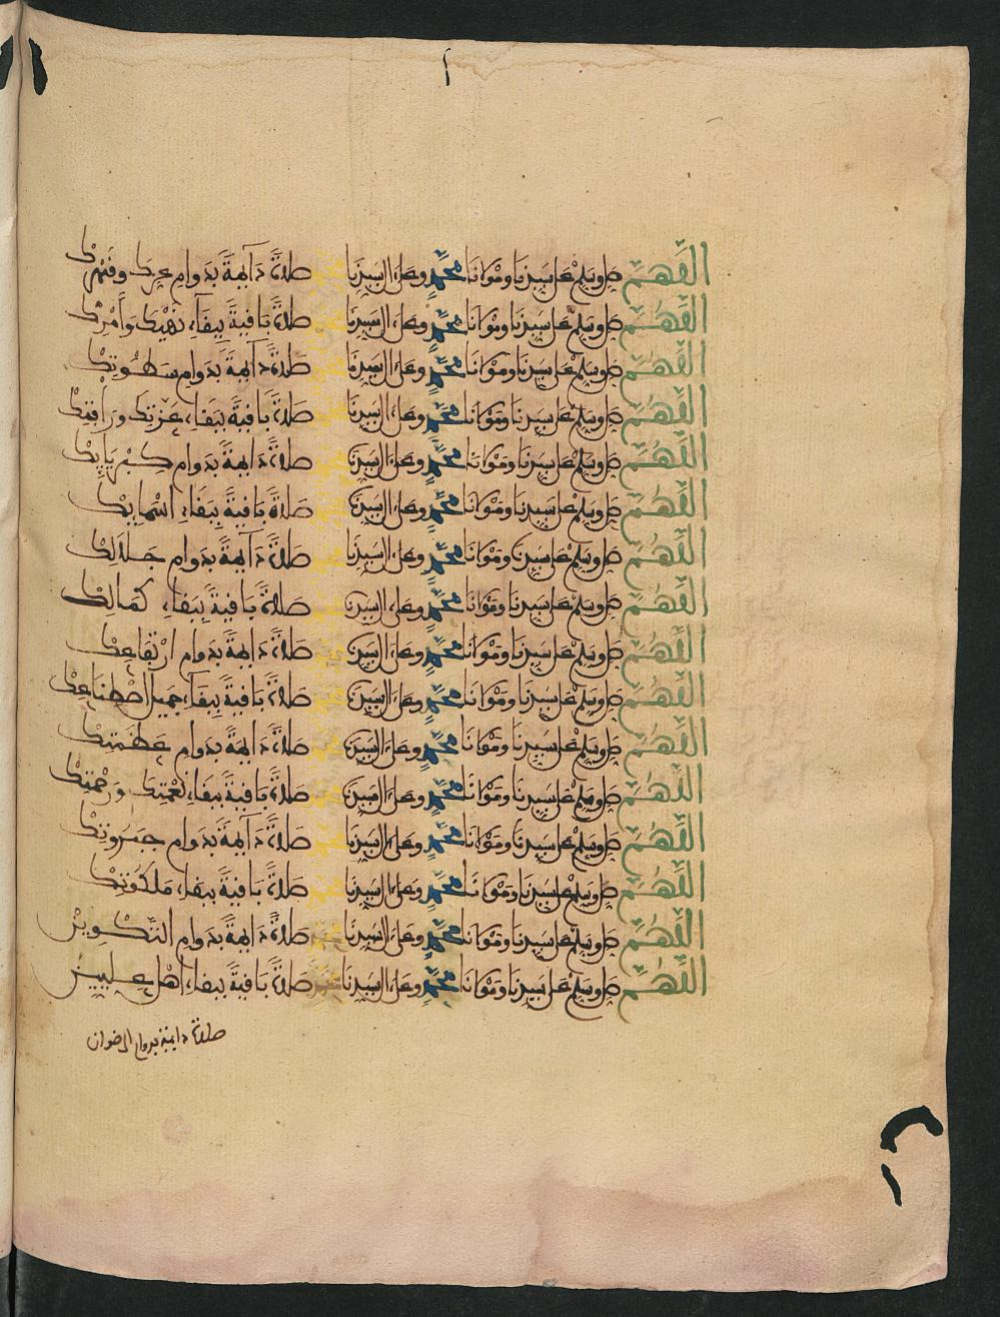 اللهم صل وسلم على سيدنا ومولانا محمد وعلى ءال سيدنا محمد صلاة دآئمة بدوام عزك وقهرك
اللهم صل وسلم على سيدنا ومولانا محمد وعلى ءال سيدنا محمد صلاة باقية ببقاء نهيك وأمرك
اللهم صل وسلم على سيدنا ومولانا محمد وعلى ءال سيدنا محمد صلاة دآئمة بدوام سطوتك
اللهم صل وسلم على سيدنا ومولانا محمد وعلى ءال سيدنا محمد صلاة باقية ببقاء عزتك ورأفتك
اللهم صل وسلم على سيدنا ومولانا محمد وعلى ءال سيدنا محمد صلاة دآئمة بدوام كبريايك
اللهم صل وسلم على سيدنا ومولانا محمد وعلى ءال سيدنا محمد صلاة باقية ببقاء اسمايك
اللهم صل وسلم على سيدنا ومولانا محمد وعلى ءال سيدنا محمد صلاة دآئمة بدوام جلالك
اللهم صل وسلم على سيدنا ومولانا محمد وعلى ءال سيدنا محمد صلاة باقية ببقاء كمالك
اللهم صل وسلم على سيدنا ومولانا محمد وعلى ءال سيدنا محمد صلاة دآئمة بدوام ارتفاعك
اللهم صل وسلم على سيدنا ومولانا محمد وعلى ءال سيدنا محمد صلاة باقية ببقاء جميل اصطناعك
اللهم صل وسلم على سيدنا ومولانا محمد وعلى ءال سيدنا محمد صلاة دآئمة بدوام عظمتك
اللهم صل وسلم على سيدنا ومولانا محمد وعلى ءال سيدنا محمد صلاة باقية ببقاء نعمتك ورحمتك
اللهم صل وسلم على سيدنا ومولانا محمد وعلى ءال سيدنا محمد صلاة دآئمة بدوام جبروتك
اللهم صل وسلم على سيدنا ومولانا محمد وعلى ءال سيدنا محمد صلاة باقية ببقاء ملكوتك
اللهم صل وسلم على سيدنا ومولانا محمد وعلى ءال سيدنا محمد صلاة دآئمة بدوام التكوين
اللهم صل وسلم على سيدنا ومولانا محمد وعلى ءال سيدنا محمد صلاة باقية ببقاء اهل عليين
صلاة دايمة بدوام الرضوان